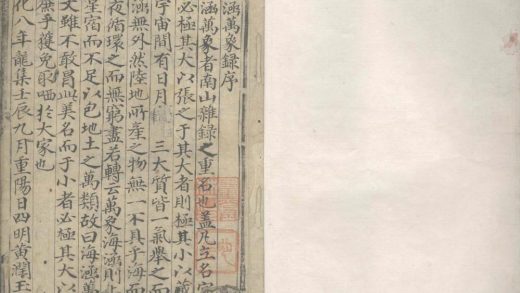 涵萬象錄序
涵萬象者南山雜錄之重名也蓋凡立名字
必極其大以張之于其大者則極其小以藏
宇宙間有日月 三大質皆一氣舉之而
涵無外然陸地所産之物無一不具乎海而
夜循環之而無窮盡若轉云萬象海涵則止
星宿而不足以包地土之萬類故曰海涵萬
文雖不敢昌此美名而于小者必極其大以
庶乎獲免取哂於大家也
化八年龍集壬辰九月重陽日四明黄潤玉